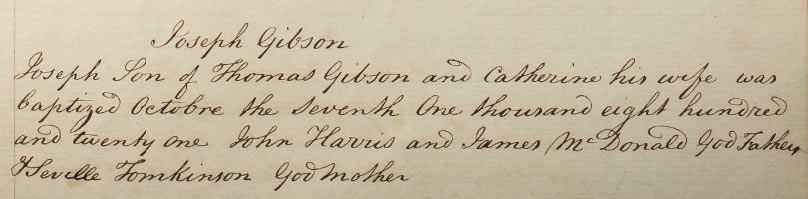 Joseph Gibson
Joseph Son of Thomas Gibson and Catherine his wife was
baptized Octobre the seventh One thousand eight hundred
and twenty one John Harris and James McDonald God Fathers
& Seville Tomkinson God Mother